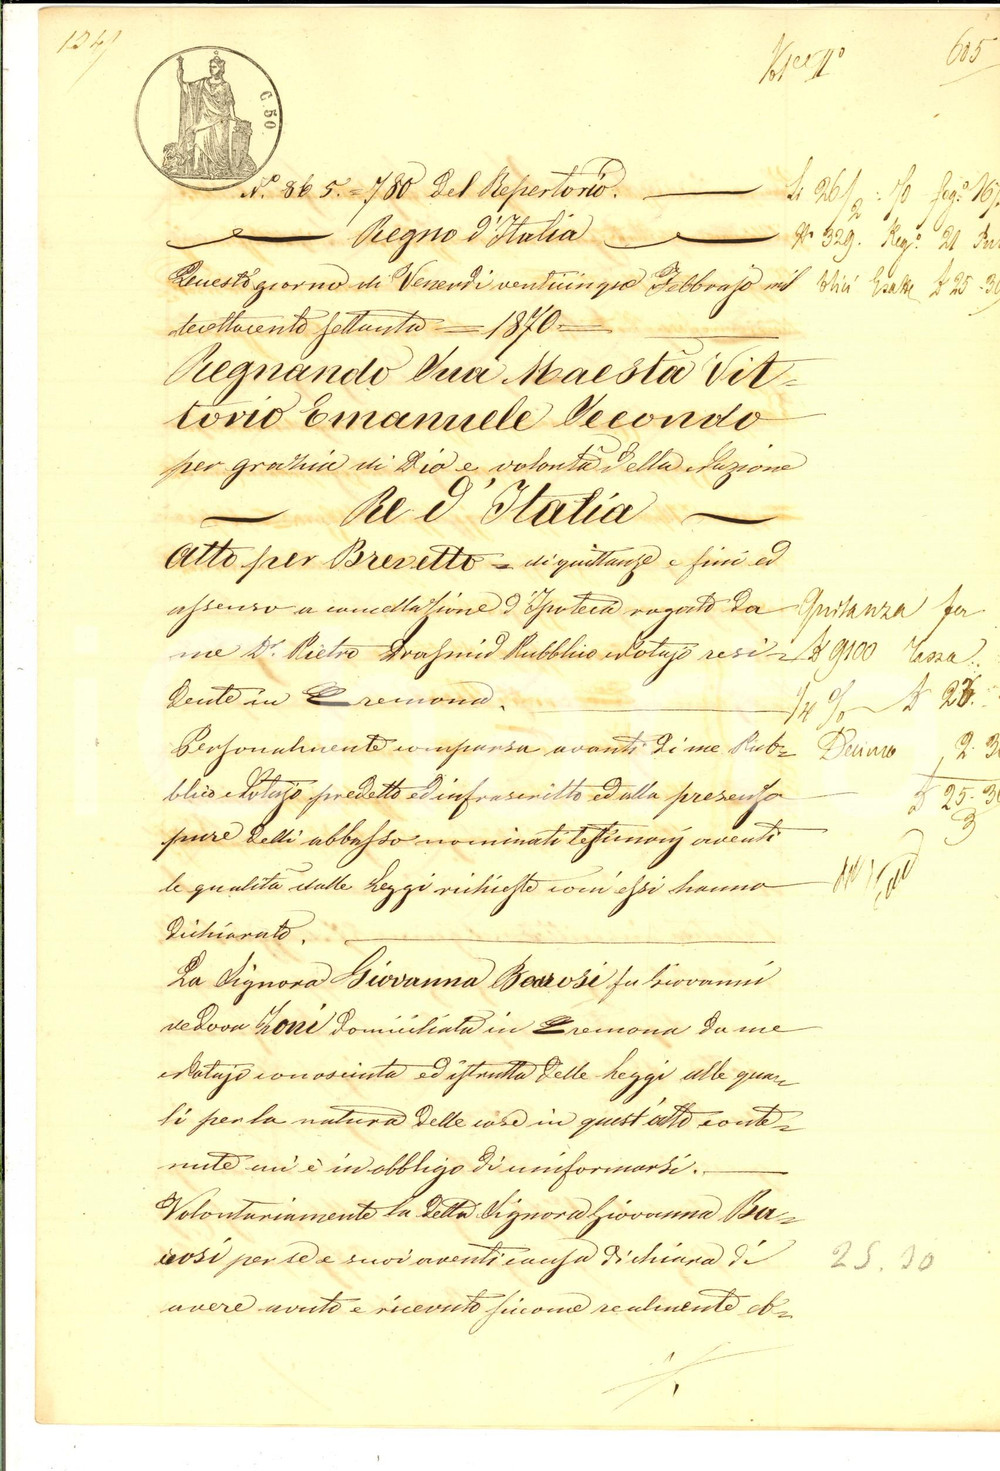 605
C. 50.
N.º 865. = 780 del Repertorio.
Regno d'Italia
Questo giorno di Venerdi venticinque Febbrajo mil
leottocento settanta = 1870 =
Regnando Sua Maestà Vit=
torio Emanuele Secondo
per grazia di Dio e volontà della Nazione
Re d'Italia
Atto per Brevetto = di quittanze e fini ed
assenso a cancellazione d'Ipoteca rogato da
me Dr. Pietro Pubblico Notajo resi=
dente in Cremona.
Personalmente comparsa avanti di me Pub=
blico Notajo predetto ed infrascritto ed alla presenza
pure delli abbasso nominati testimonj aventi
le qualità dalle Leggi richieste com' essi hanno
dichiarato.
La Signora Giovanna Barosi fu Giovanni
vedova Zoni domiciliata in Cremona da me
Notajo conosciuta ed istrutta delle Leggi alle qua=
li per la natura delle cose in quest'atto conte=
nute mi è in obbligo di uniformarsi.
Volontariamente la detta Signora Giovanna Ba=
rosi per se e suoi aventi causa dichiara di
avere avuto e ricevuto siccome realmente eb=
Nº 329. Reg.º 21
Esatte £ 25-30
Quitanza per
£ 9100 Tassa
1/4 % £ 23.
Decimo 2.30
£ 25.30
3
25.30